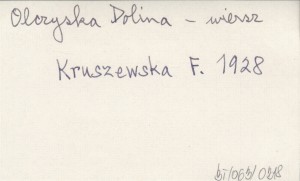 Olczyska Dolina - wiersz
Kruszewska F. 1928
BT/065/0218